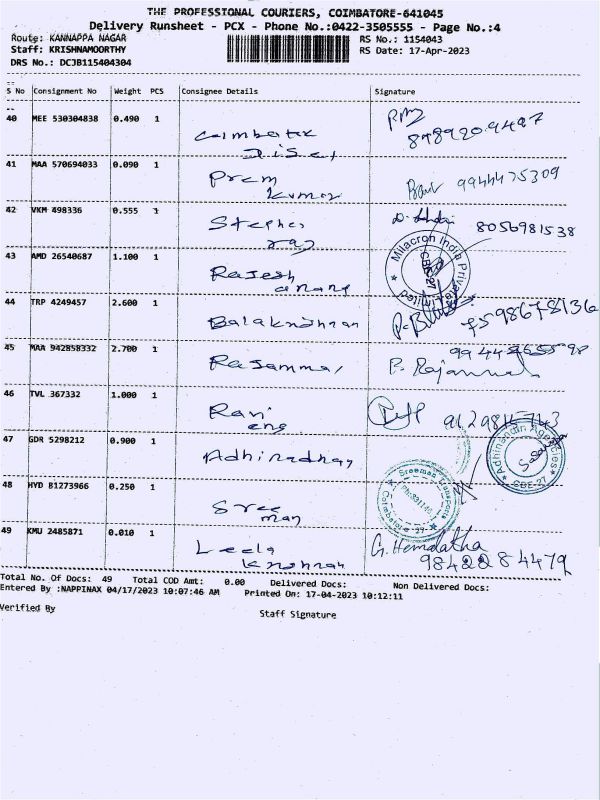 THE PROFESSIONAL COURIERS, COIMBATORE-641045
Delivery Runsheet - PCX - Phone No.:0422-3505555 - Page No.:4
Route: KANNAPPA NAGAR
Staff: KRISHNAMOORTHY
DRS No.: DCJB115404304
RS No.: 1154043
RS Date: 17-Apr-2023
S No Consignment No Weight PCS Consignee Details Signature
40 MEE 530304838 0.490 1
41 MAA 570694033 0.090 1 Prem Kumar 9944475309
42 VKM 498336 0.555 1 Stephen raj 8056981538
43 AMD 26540687 1.100 1 Rajesh anang
Milacron India Private Limited
CBE-27
44 TRP 4249457 2.600 1 Balakrishnan 7598678136
45 MAA 942858332 2.700 1 Rajammal P. Rajammal
46 TVL 367332 1.000 1 Ravi eng
47 GDR 5298212 0.900 1
Adhinandri Agencies
CBE-27
48 HYD B1273966 0.250 1 Sree man
Coimbatore
49 KMU 2485871 0.010 1 Leela Krishnan G. Hemalatha
9842284479
Total No. Of Docs: 49 Total COD Amt: 0.00 Delivered Docs: Non Delivered Docs:
Entered By :NAPPINAX 04/17/2023 10:07:46 AM Printed On: 17-04-2023 10:12:11
Verified By
Staff Signature